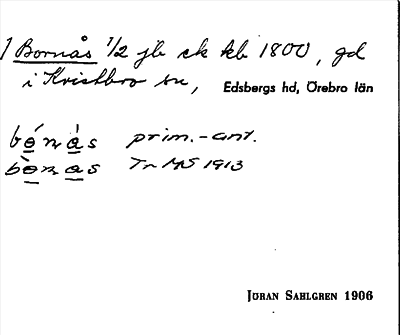 1 Bornås 1/2 jb sk kb 1800, gd
i Kvistbro sn, Edsbergs hd, Örebro län
bó̱nà̱s prim.-ant.
bò̱na̱s Tr MS 1913
JÖRAN SAHLGREN 1906